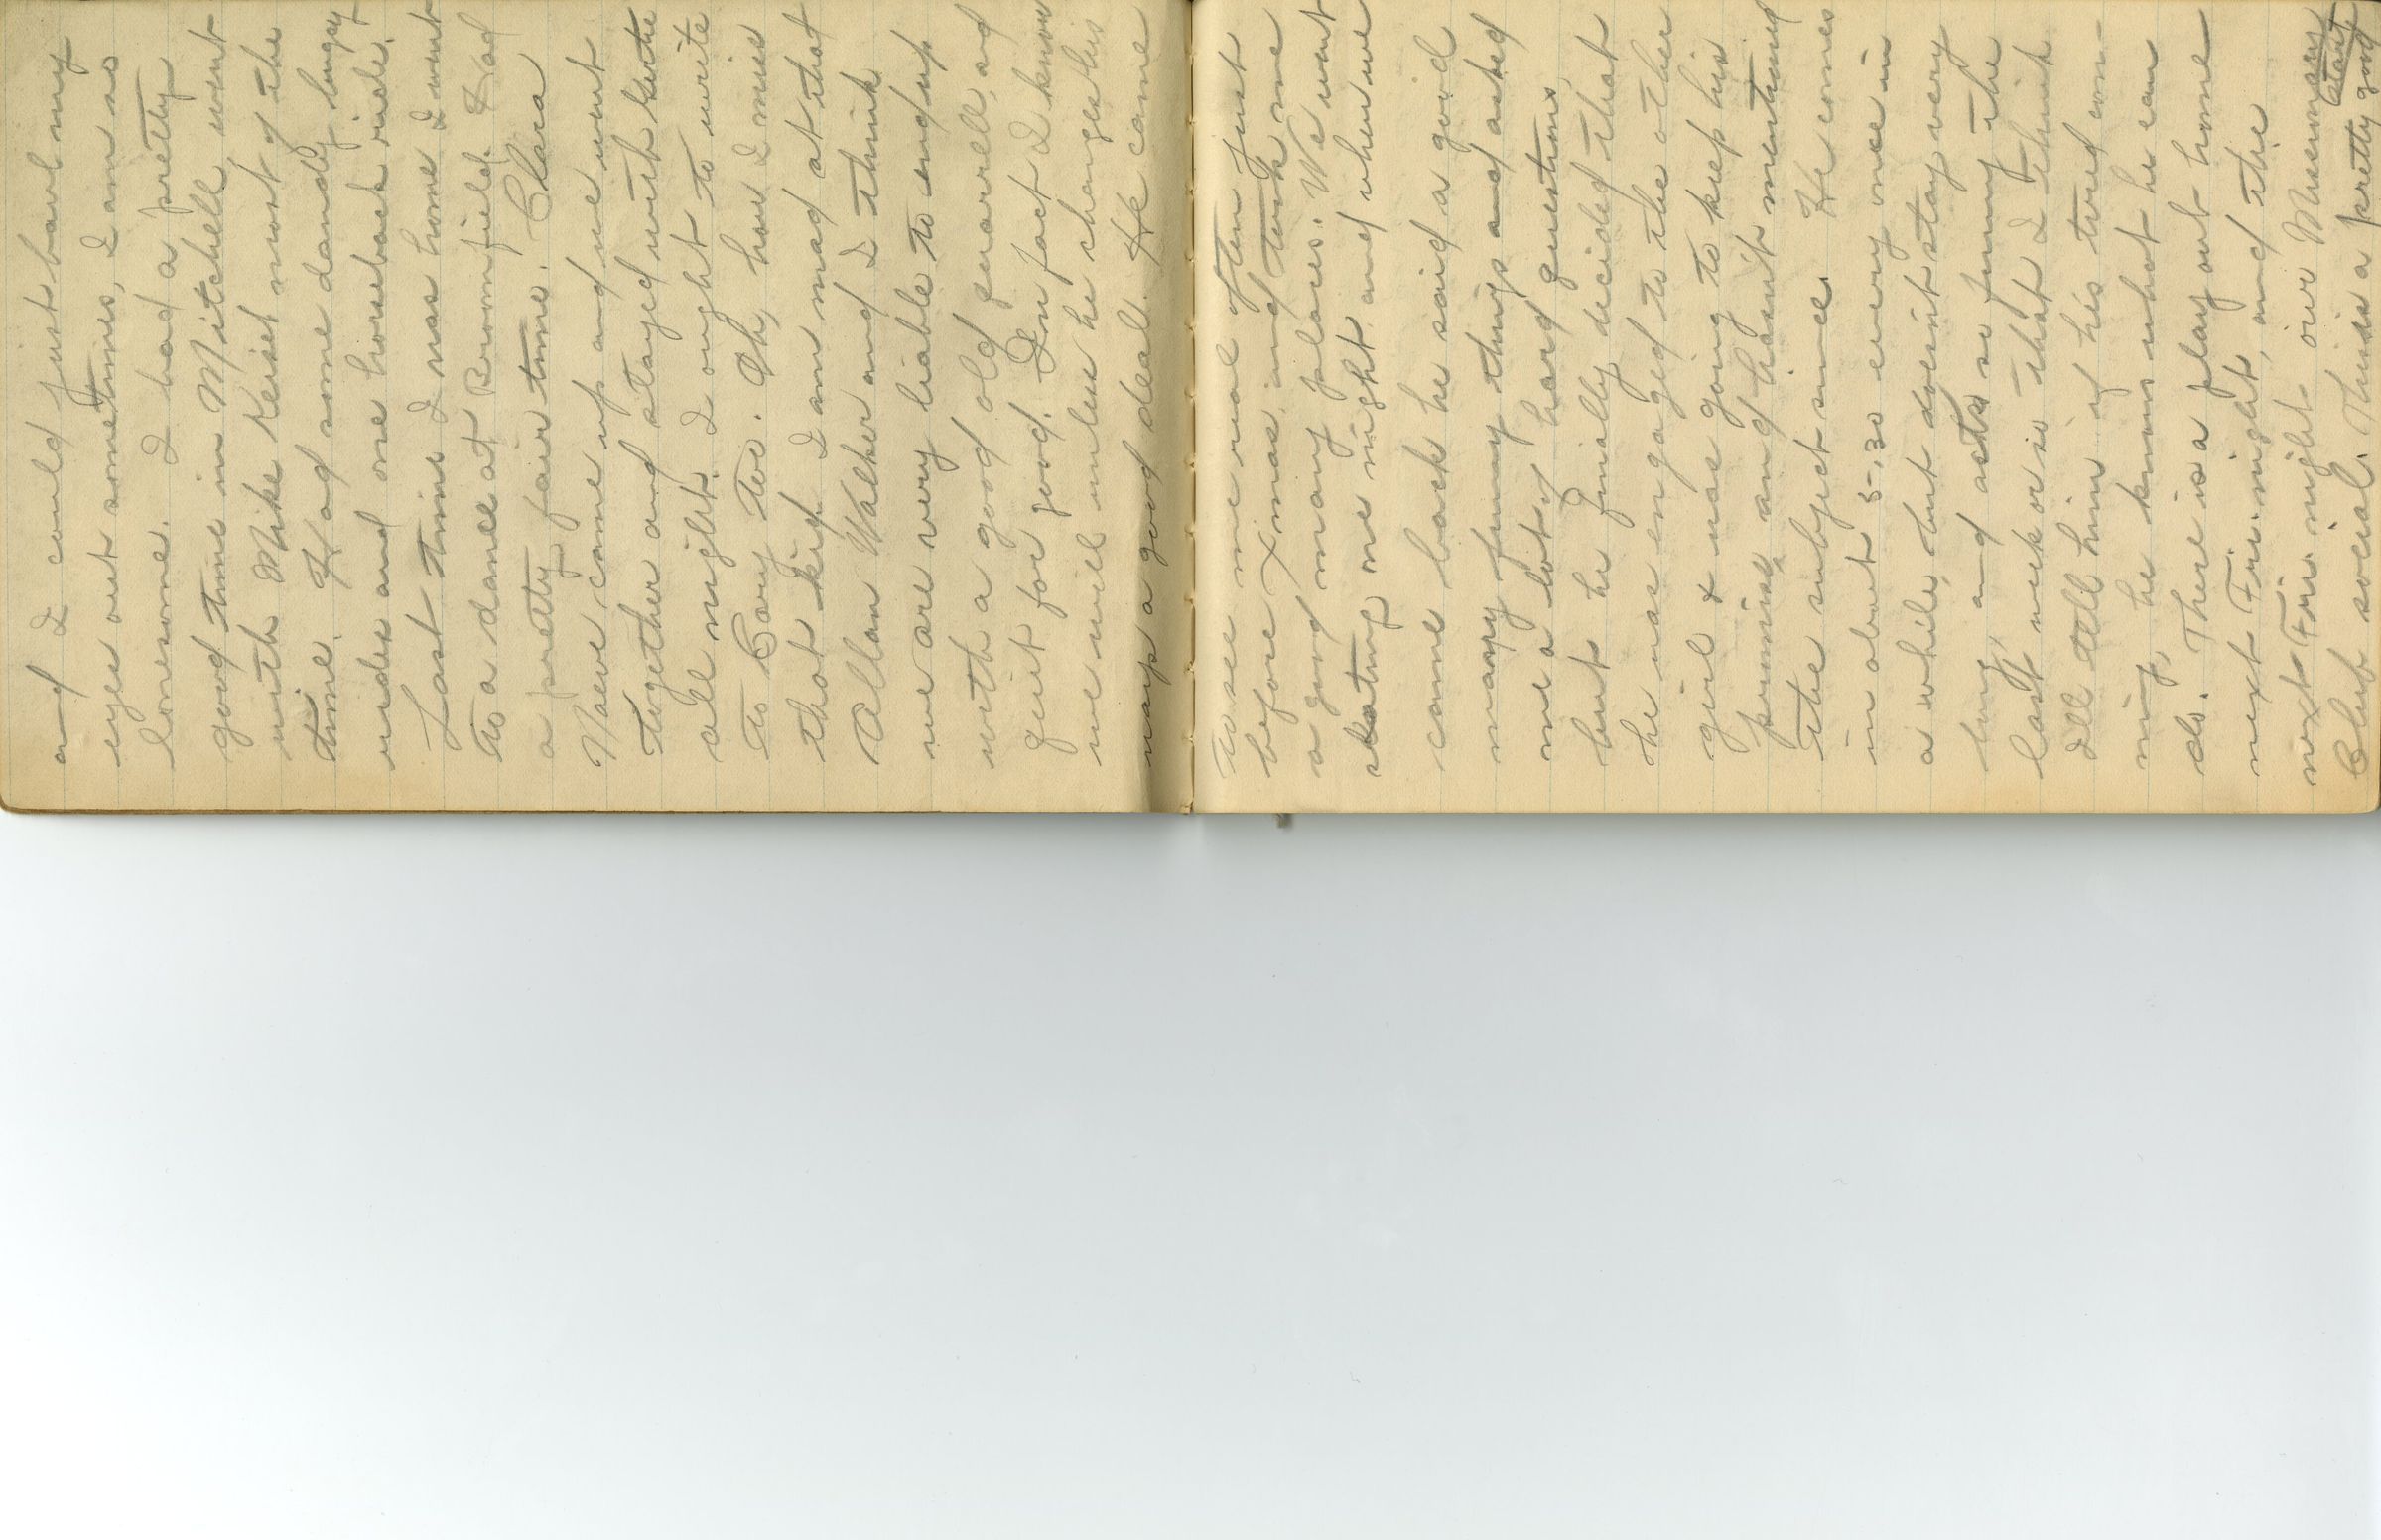 and I could just bawl my
eyes out sometimes, I am so
lonesome. I had a pretty
good time in Mitchell, went
with Mike Keiser most of the
time. Had some dandy buggy
rides and one horseback ride.
Last time I was home I went
to a dance at Broomfield. Had
a pretty fair time. Clara
Naeve came up and we went
together and stayed with
all night. I ought to write
to Cary too. Oh, how I miss
that kid. I am mad at that
Allan Walker and I think
we are very liable to end up
with a good old quarrell, and
quit for good. In fact I know
we will unless he changes his
ways a good deal. He came
to see me real often just
before Xmas, and took me
a good many places. We went
skating one night and when we
came back he said a good
many funny things and asked
me a lot of hard questions,
but he finally decided that
he was engaged to the other
girl & was going to keep his
promise, and hasn't mentioned
the subject since. He comes
in about 5:30 every once in
a while, but doesn't stay very
long, and acts so funny the
last week or so that I think
I'll tell him if he's tired com-
ing, he knows what he can
do. There is a play out home
next Fri. night, and the
next Fri. night our Museum
Club social. This is a pretty good